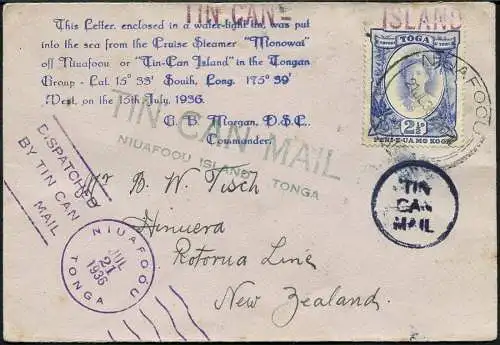 TIN CAN ISLAND
This Letter, enclosed in a water-tight tin, was put
into the sea from the Cruise Steamer "Monowai"
off Niuafoou or "Tin-Can Island" in the Tongan
Group - Lat. 15° 33' South, Long. 175° 39'
West, on the 15th July, 1936.
G. B. Morgan, D.S.C.
Commander.
TOGA
2½D
NIUAFOOU
TIN CAN MAIL
NIUAFOOU ISLAND TONGA
DISPATCHED
BY TIN CAN
MAIL
Mr B. W. Tisch
Hinuera
Rotorua Line
New Zealand.
TIN
CAN
MAIL
NIUAFOOU
JUL
21
1936
TONGA